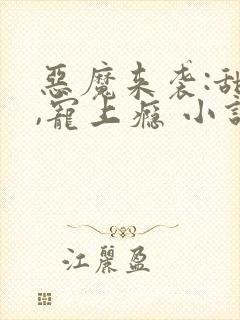 惡魔来袭:甜
,寵上癮 小說
江麗盈